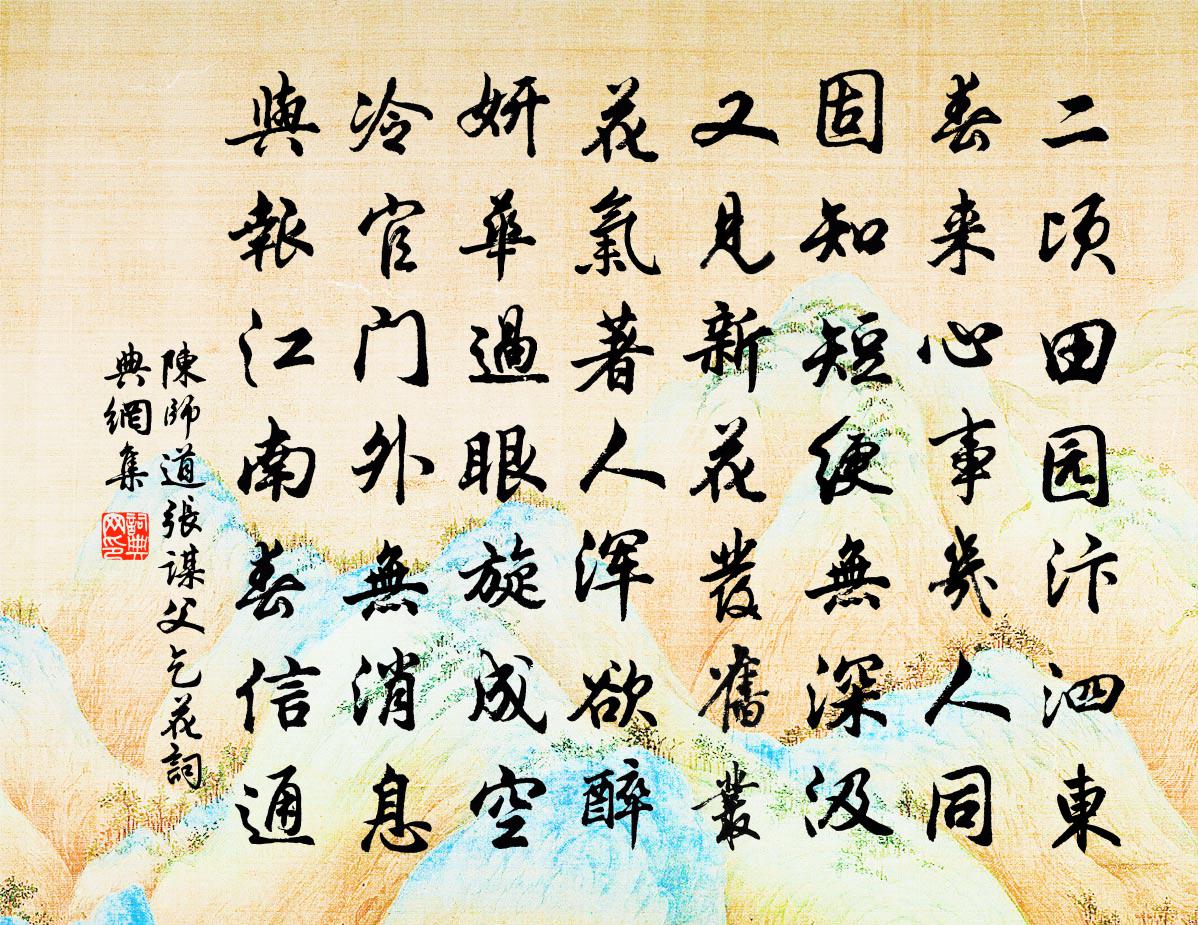 二顷田园汴泗東
春来心事几人同
固知短绠無深汲
又見新花發舊叢
花氣著人浑欲醉
妍華過眼旋成空
冷官门外無消息
與報江南春信通
陳師道張謀父乞花詞
典網集
詞典網印